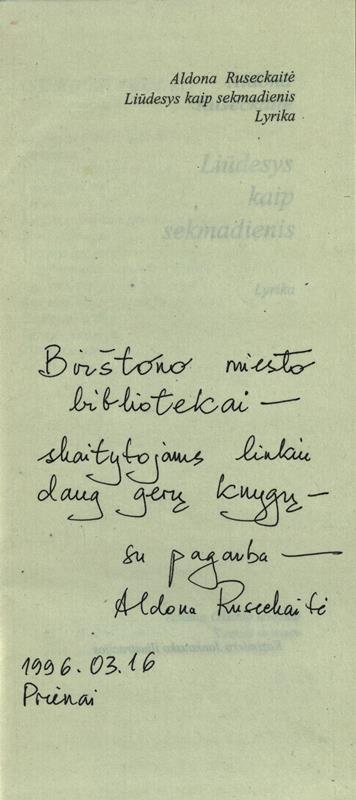 Aldona Ruseckaitė
Liūdesys kaip sekmadienis
Lyrika
Liūdesys
kaip
sekmadienis
Lyrika
Birštono miesto
bibliotekai —
skaitytojams linkiu
daug gerų knygų —
su pagarba —
Aldona Ruseckaitė
1996.03.16
Prienai